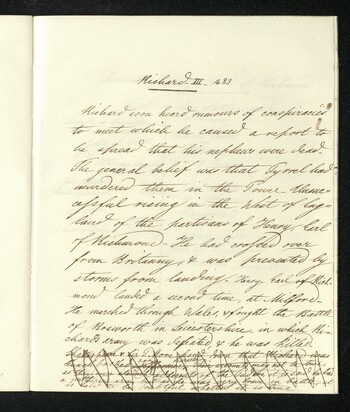 Richard III. 1483
Richard soon heard rumours of conspiracies
to meet which he caused a report to
be spread that his nephews were dead
The general belief was that Tyrrel had
murdered them in the Tower Unsuc-
cessful rising in the West of Eng-
land of the partisans of Henry, Earl
of Richmond - He had crossed over
from Brittanny, & was prevented by
storms from landing. Henry Earl of Rich-
mond landed a second time, at Milford-
He marched through Wales, & fought the Battle
of Bosworth in Leicestershire in which Ri-
chard's army was defeated & he was killed